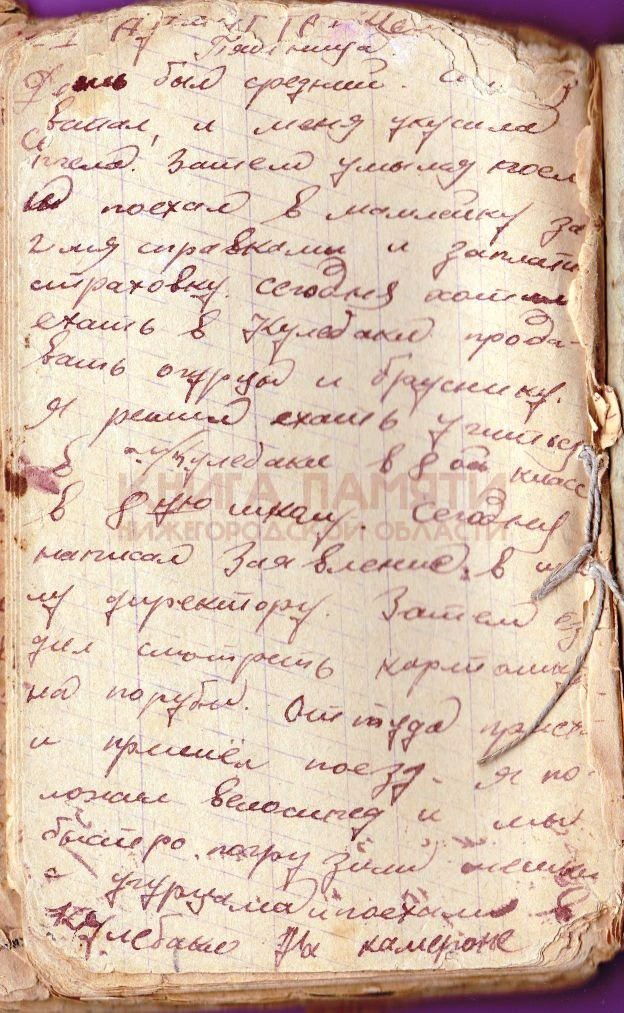 Август
Пятница
День был средний.
вапал, и меня укусила
пчела. Затем умылся поел
и поехал в мамлейку за
2 мя справками и заплатил
страховку. Сегодня хотим
ехать в Кулебаки прода-
вать огурцы и бруснику.
Я решил ехать учиться
в Кулебаки в 8 ой класс
в 8 ую школу. Сегодня
написал заявление, в шко
лу директору. Затем ез
дил смотреть картошку
на порубы. Оттуда приехал
и пришёл поезд. Я по-
ложил велосипед и мы
быстро погрузили мешки
с угурцами и поехали в
Кулебаки На
КНИГА ПАМЯТИ
НИЖЕГОРОДСКОЙ ОБЛАСТИ